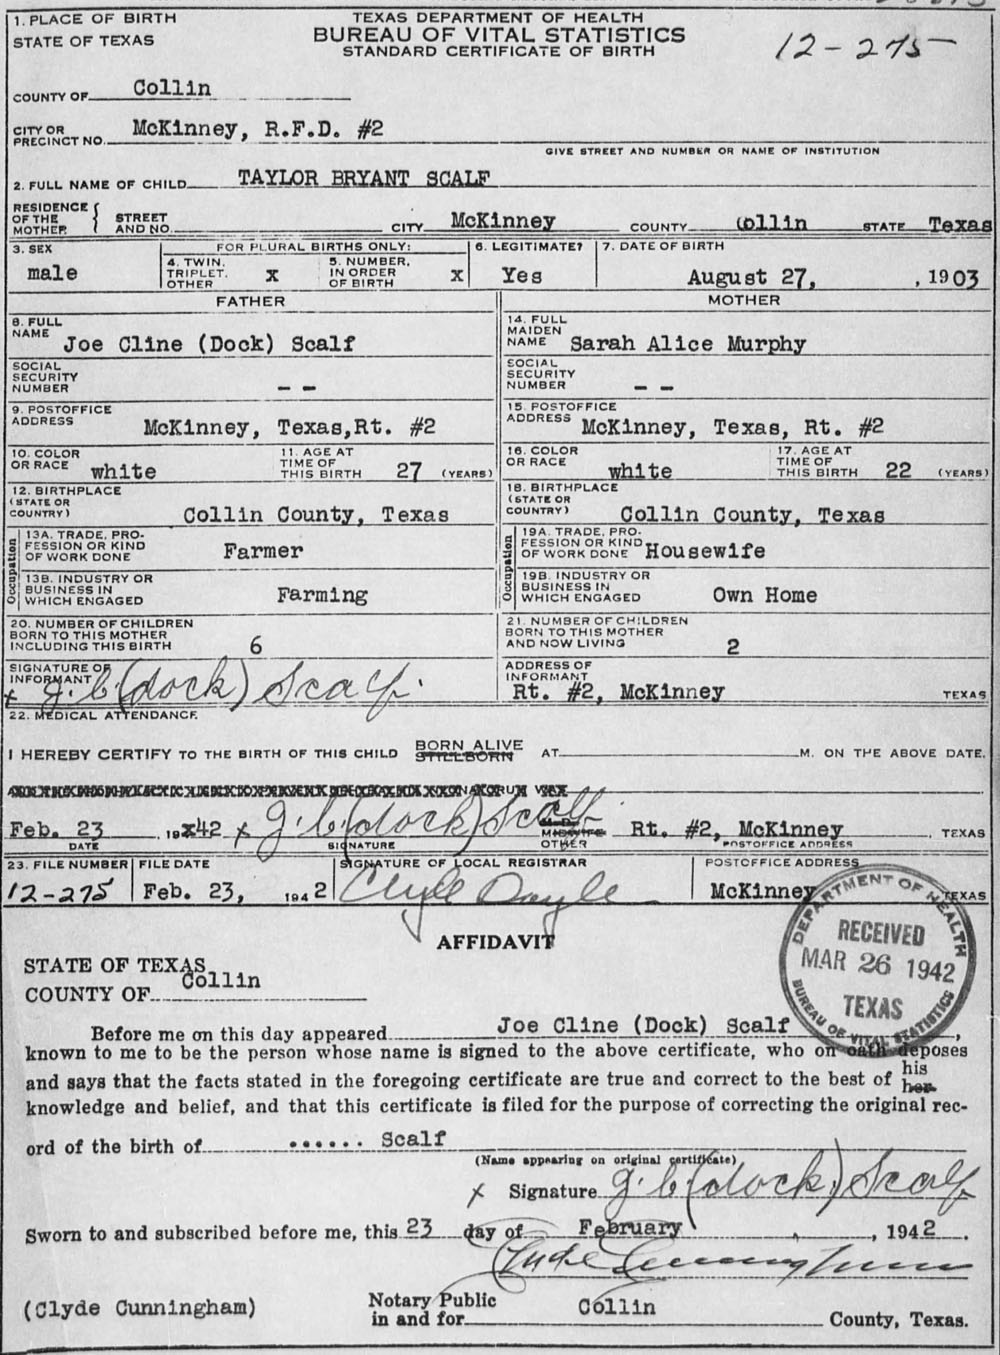 1. PLACE OF BIRTH
STATE OF TEXAS
TEXAS DEPARTMENT OF HEALTH
BUREAU OF VITAL STATISTICS
STANDARD CERTIFICATE OF BIRTH
12-275
COUNTY OF Collin
CITY OR PRECINCT NO. McKinney, R.F.D. #2
GIVE STREET AND NUMBER OR NAME OF INSTITUTION
2. FULL NAME OF CHILD TAYLOR BRYANT SCALF
RESIDENCE OF THE MOTHER { STREET AND NO. CITY McKinney COUNTY Collin STATE Texas
3. SEX male
FOR PLURAL BIRTHS ONLY:
4. TWIN, TRIPLET, OTHER x
5. NUMBER, IN ORDER OF BIRTH x
6. LEGITIMATE? Yes
7. DATE OF BIRTH August 27, , 1903
FATHER
MOTHER
8. FULL NAME Joe Cline (Dock) Scalf
14. FULL MAIDEN NAME Sarah Alice Murphy
SOCIAL SECURITY NUMBER - -
SOCIAL SECURITY NUMBER - -
9. POSTOFFICE ADDRESS McKinney, Texas,Rt. #2
15. POSTOFFICE ADDRESS McKinney, Texas, Rt. #2
10. COLOR OR RACE white
11. AGE AT TIME OF THIS BIRTH 27 (YEARS)
16. COLOR OR RACE white
17. AGE AT TIME OF THIS BIRTH 22 (YEARS)
12. BIRTHPLACE (STATE OR COUNTRY) Collin County, Texas
18. BIRTHPLACE (STATE OR COUNTRY) Collin County, Texas
Occupation
13A. TRADE, PROFESSION OR KIND OF WORK DONE Farmer
Occupation
19A. TRADE, PROFESSION OR KIND OF WORK DONE Housewife
13B. INDUSTRY OR BUSINESS IN WHICH ENGAGED Farming
19B. INDUSTRY OR BUSINESS IN WHICH ENGAGED Own Home
20. NUMBER OF CHILDREN BORN TO THIS MOTHER INCLUDING THIS BIRTH 6
21. NUMBER OF CHILDREN BORN TO THIS MOTHER AND NOW LIVING 2
SIGNATURE OF INFORMANT x J.C. (dock) Scalf.
ADDRESS OF INFORMANT Rt. #2, McKinney TEXAS
22. MEDICAL ATTENDANCE
I HEREBY CERTIFY TO THE BIRTH OF THIS CHILD BORN ALIVE STILLBORN AT M. ON THE ABOVE DATE.
Feb. 23 , 19x42 x J.C. (dock) Scalf M.D. MIDWIFE OTHER Rt. #2, McKinney , TEXAS
DATE SIGNATURE POSTOFFICE ADDRESS
23. FILE NUMBER FILE DATE SIGNATURE OF LOCAL REGISTRAR POSTOFFICE ADDRESS
12-275 Feb. 23, 1942 Clyde Doyle McKinney TEXAS
DEPARTMENT OF HEALTH
RECEIVED
MAR 26 1942
TEXAS
BUREAU OF VITAL STATISTICS
AFFIDAVIT
STATE OF TEXAS
COUNTY OF Collin
Before me on this day appeared Joe Cline (Dock) Scalf ,
known to me to be the person whose name is signed to the above certificate, who on oath deposes
and says that the facts stated in the foregoing certificate are true and correct to the best of his her
knowledge and belief, and that this certificate is filed for the purpose of correcting the original rec-
ord of the birth of ...... Scalf
(Name appearing on original certificate)
x Signature J.C. (dock) Scalf
Sworn to and subscribed before me, this 23 day of February , 1942.
Clyde Cunningham
(Clyde Cunningham) Notary Public in and for Collin County, Texas.